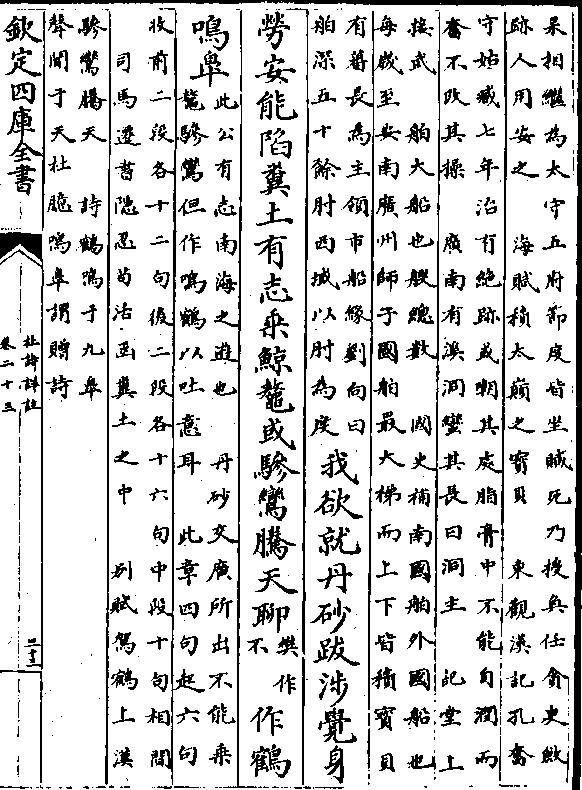 杲相繼為太守五府節度皆坐贓死乃授奐任貪吏斂
跡人用安之　海賦積太巔之寳貝　東觀漢記孔奮
守姑臧七年治有絶跡或嘲其處脂膏中不能自潤而
奮不改其操　廣南有溪洞蠻其長曰洞主　記堂上
接武　舶大船也艘總數　國史補南國舶外國船也
每歲至安南廣州師子國舶最大梯而上下皆積寳貝
有蕃長為主領市船緣劉向曰
舶深五十餘肘西域以肘為度
我欲就丹砂跋涉覺身
勞安能陷糞土有志乗鯨鼇或驂鸞騰天聊
樊作
不
作鶴
鳴臯
此公有志南海之遊也　丹砂交廣所出不能乗
鼇驂鸞但作鳴鶴以吐意耳　此章四句起六句
收前二段各十二句後二段各十六句中段十句相間
司馬遷書隠忍茍活函糞土之中　別賦駕鶴上漢
驂鸞騰天　詩鶴鳴于九臯
聲聞于天杜臆鳴臯謂贈詩
欽定四庫全書
杜詩詳註
卷二十三